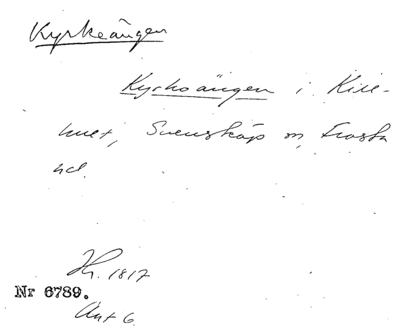 Kyrkoängen
Kyrkoängen i Kill-
huset, Svensköp sn, Frosta
hd.
Kr. 1817
Nr 6789.
Akt 6.